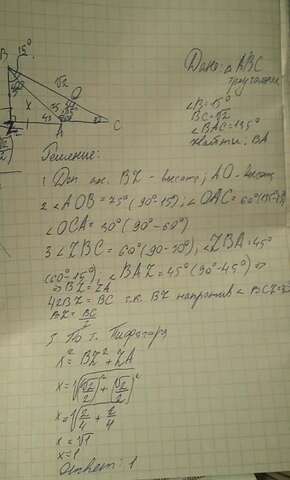 B 15°
√2
O
x
45
A
C
Дано: △ABC
треугольник
∠B=15°
BC=√2
∠BAC=135°
Найти: BA
Решение:
1 Доп. BZ - высота; AO - высота
2 ∠AOB = 75° (90-15); ∠OAC = 60°
∠OCA = 30° (90°-60°)
3 ∠ZBC = 60° (90-30°), ∠ZBA = 45°
(60-15°), ∠BAZ = 45° (90-45°) ⇒
⇒ BZ = ZA
4 2BZ = BC т.к. BZ напротив ∠BCZ=
BZ = BC
5. По т. Пифагора
x² = BZ² + ZA
x = √(√2/2)² + (√2/2)²
x = √2/4 + 2/4
x = √1
x = 1
Ответ: 1